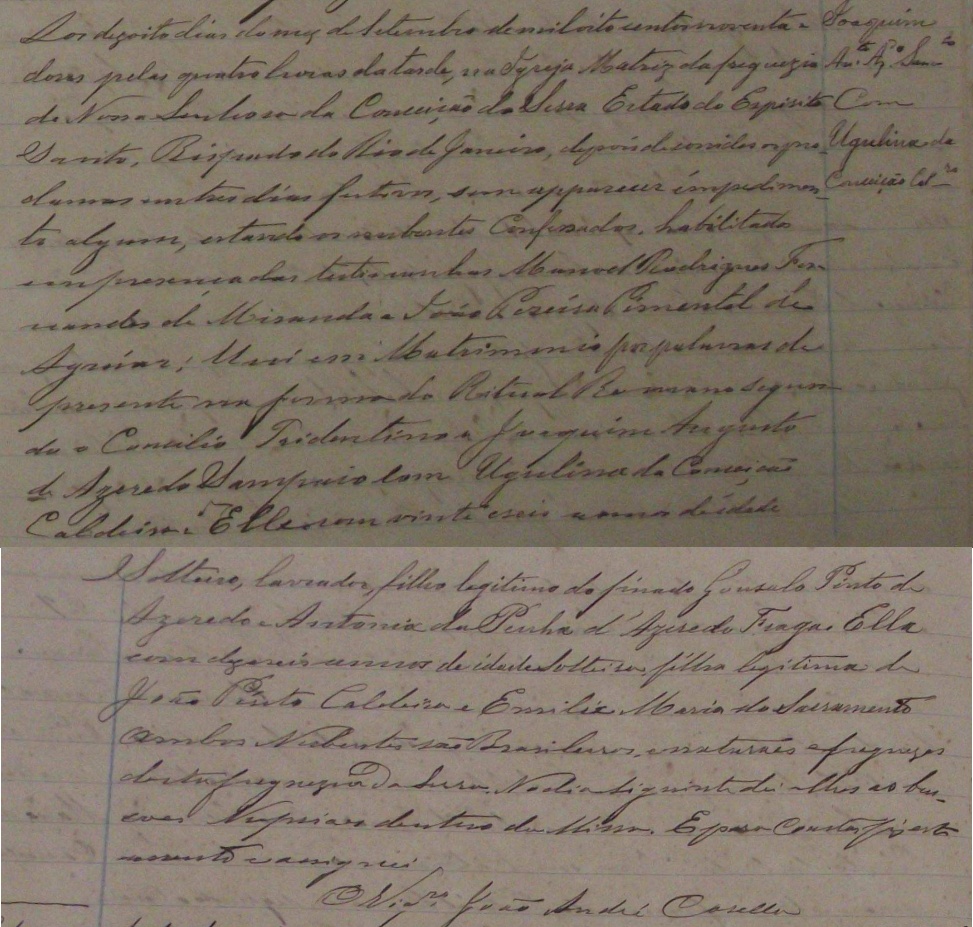 Aos dezoito dias do mez de Setembro de mil oito centos noventa e
doses pelas quatro horas da tarde, na Igreja Matriz da freguezia
de Nossa Senhora da Conceição da Serra Estado do Espirito
Santo, Bispado do Rio de Janeiro, depois de corridos os pro-
clamas em tres dias festivos, sem apparecer impedimen-
to algum, estando os nubentes Confessados, habilitados
em presença das testemunhas Manoel Rodrigues Fer-
nandes de Miranda e João Pereira Pimentel de
Aguiar; Uni em Matrimonio por palavras de
presente na forma do Ritual Romano segun-
do o Concilio Tridentino a Joaquim Augusto
d' Azeredo Sampaio com Ugulina da Conceição
Caldeira: Elle com vinte e seis annos de idade
Joaquim
Au.to Az.o Sam-
Com
Ugulina da
Conceição Cal-
Solteiro, lavrador, filho legitimo do finado Gonsalo Pinto de
Azeredo e Antonia da Penha d' Azeredo Fraga. Ella
com dezeseis annos de idade solteira, filha legitima de
João Pinto Caldeira e Emilia Maria do Sacramento
ambos Nubentes são Brasileiros, e naturaes e freguezes
desta freguezia Da Serra. No dia siguinte dei-lhes as ben-
çoes Nupciaes dentro da Missa. E para Constar fiz este
assento e assignei
O Vig.ro João André Casella